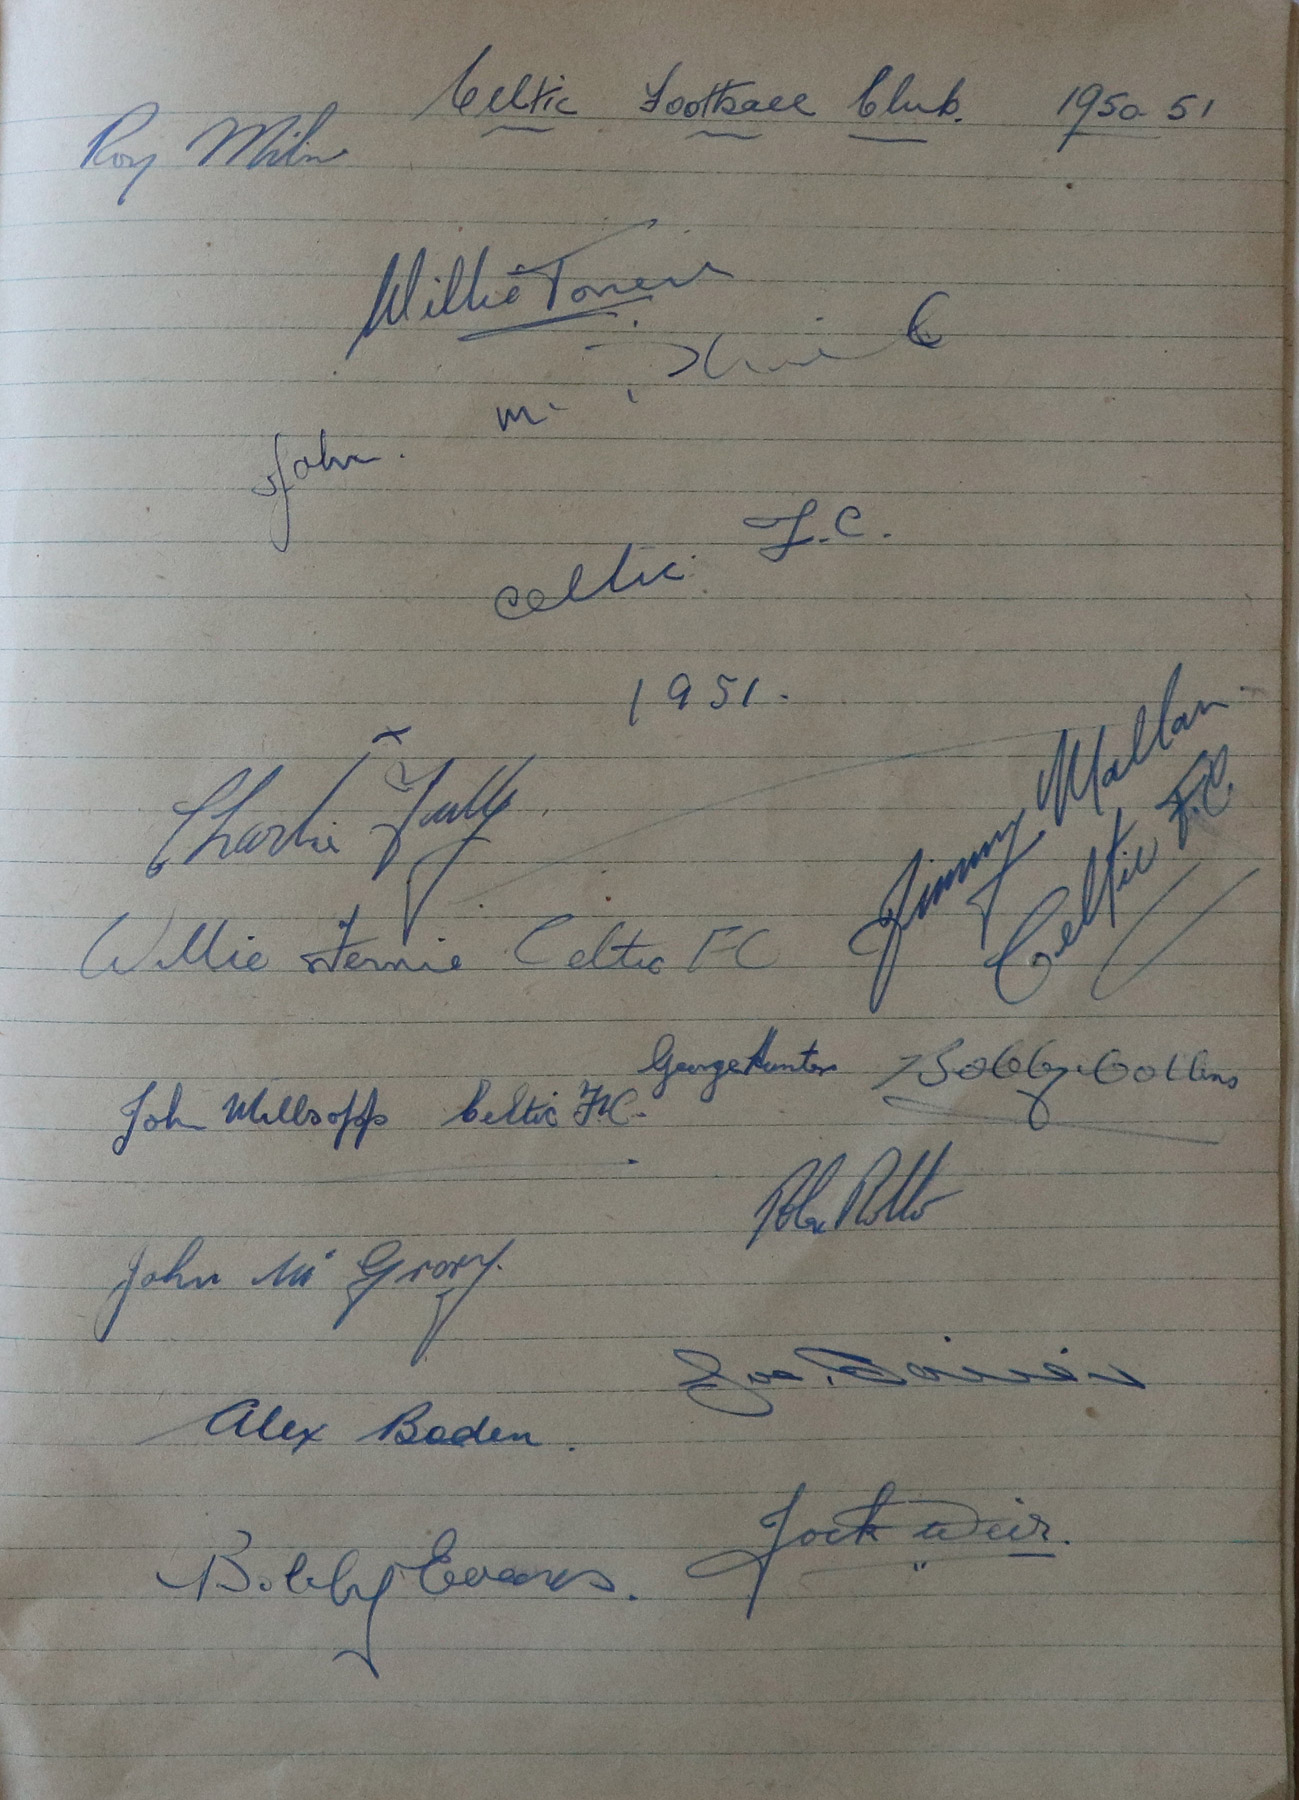 Celtic Football Club. 1950 51
Roy Milne
Willie Toner
John. Mc Phail
Celtic F.C.
1951.
Charlie Tully
Jimmy Mallan
Celtic F.C.
Willie Fernie Celtic FC
George Hunter
Bobby Collins
John Millsopp Celtic F.C.
Alex Rollo
John Mc Grory.
Joe
Alex Boden.
Jock Weir.
Bobby Evans.